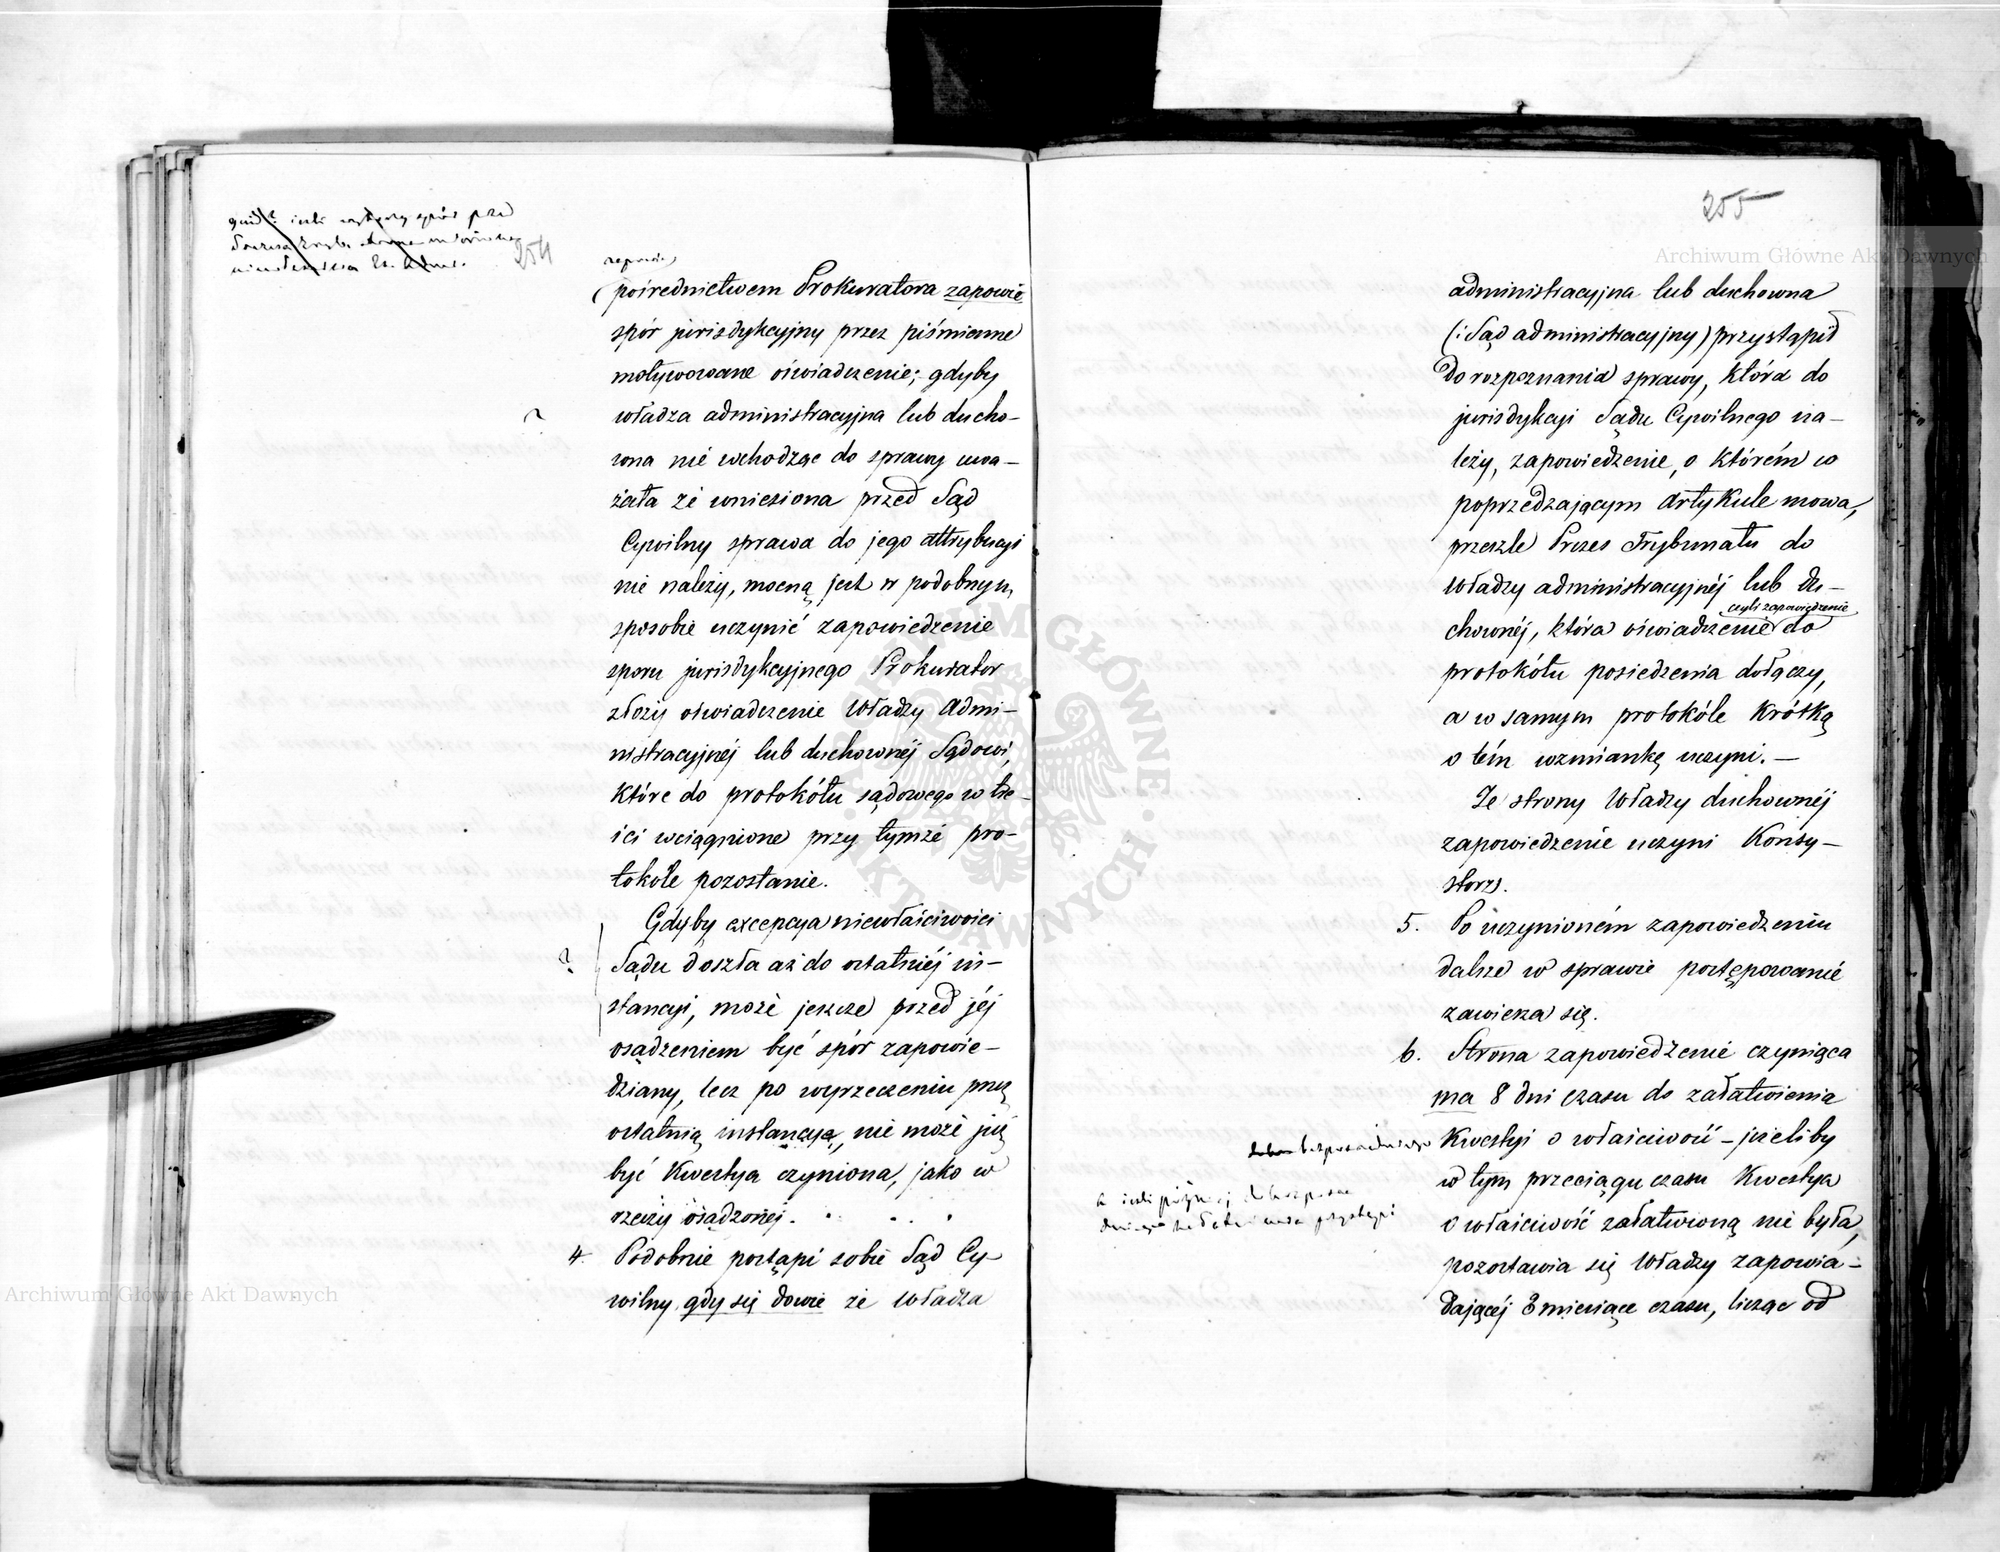 254
pośrednictwem Prokuratora zapowie
spór jurisdykcyjny przez piśmienne
motywowane oświadczenie; gdyby
? władza administracyjna lub ducho-
wna nie wchodząc do sprawy uwa-
żała że wniesiona przed Sąd
Cywilny sprawa do jego attrybucyi
nie należy, mocną jest w podobnym
sposobie uczynić zapowiedzenie
sporu jurisdykcyjnego Prokurator
złoży oświadczenie Władzy Admi-
nistracyjnéj lub duchownéj Sądowi,
które do protokółu sądowego w tre-
ści wciągnione przy tymże pro-
tokóle pozostanie.
Gdyby excepcya niewłaściwości
? Sądu doszła aż do ostatniéj in-
stancyi, może jeszcze przed jéj
osądzeniem być spór zapowie-
dziany, lecz po wyrzeczeniu przez
ostatnią instancyą, nie może już
być Kwestya czyniona, jako w
rzeczy osądzonej.
4. Podobnie postąpi sobie Sąd Cy-
wilny, gdy się dowie że Władza
255
administracyjna lub duchowna
(: Sąd administracyjny) przystąpił
do rozpoznania sprawy, która do
jurisdykcyi Sądu Cywilnego na-
leży, zapowiedzenie, o którém w
poprzedzającym artykule mowa,
prześle Prezes Trybunału do
Władzy administracyjnéj lub du-
czyli zapowiedzenie
chownéj, która oświadczenie do
protokółu posiedzenia dołączy,
a w samym protokóle krótką
o tém wzmiankę uczyni. —
Ze strony Władzy duchownéj
zapowiedzenie uczyni Konsy-
storz.
5. Po uczynioném zapowiedzeniu
dalsze w sprawie postępowanie
zawiesza się.
6. Strona zapowiedzenie czyniąca
ma 8 dni czasu do załatwienia
bezpośredniego Kwestyi o właściwość – jeżeliby
w tym przeciągu czasu Kwestya
o właściwość załatwioną nie była,
pozostawia się Władzy zapowia-
dającéj 3 miesiące czasu, licząc od
Archiwum Główne Akt Dawnych
Archiwum Główne Akt Dawnych
ARCHIWUM GŁÓWNE AKT DAWNYCH